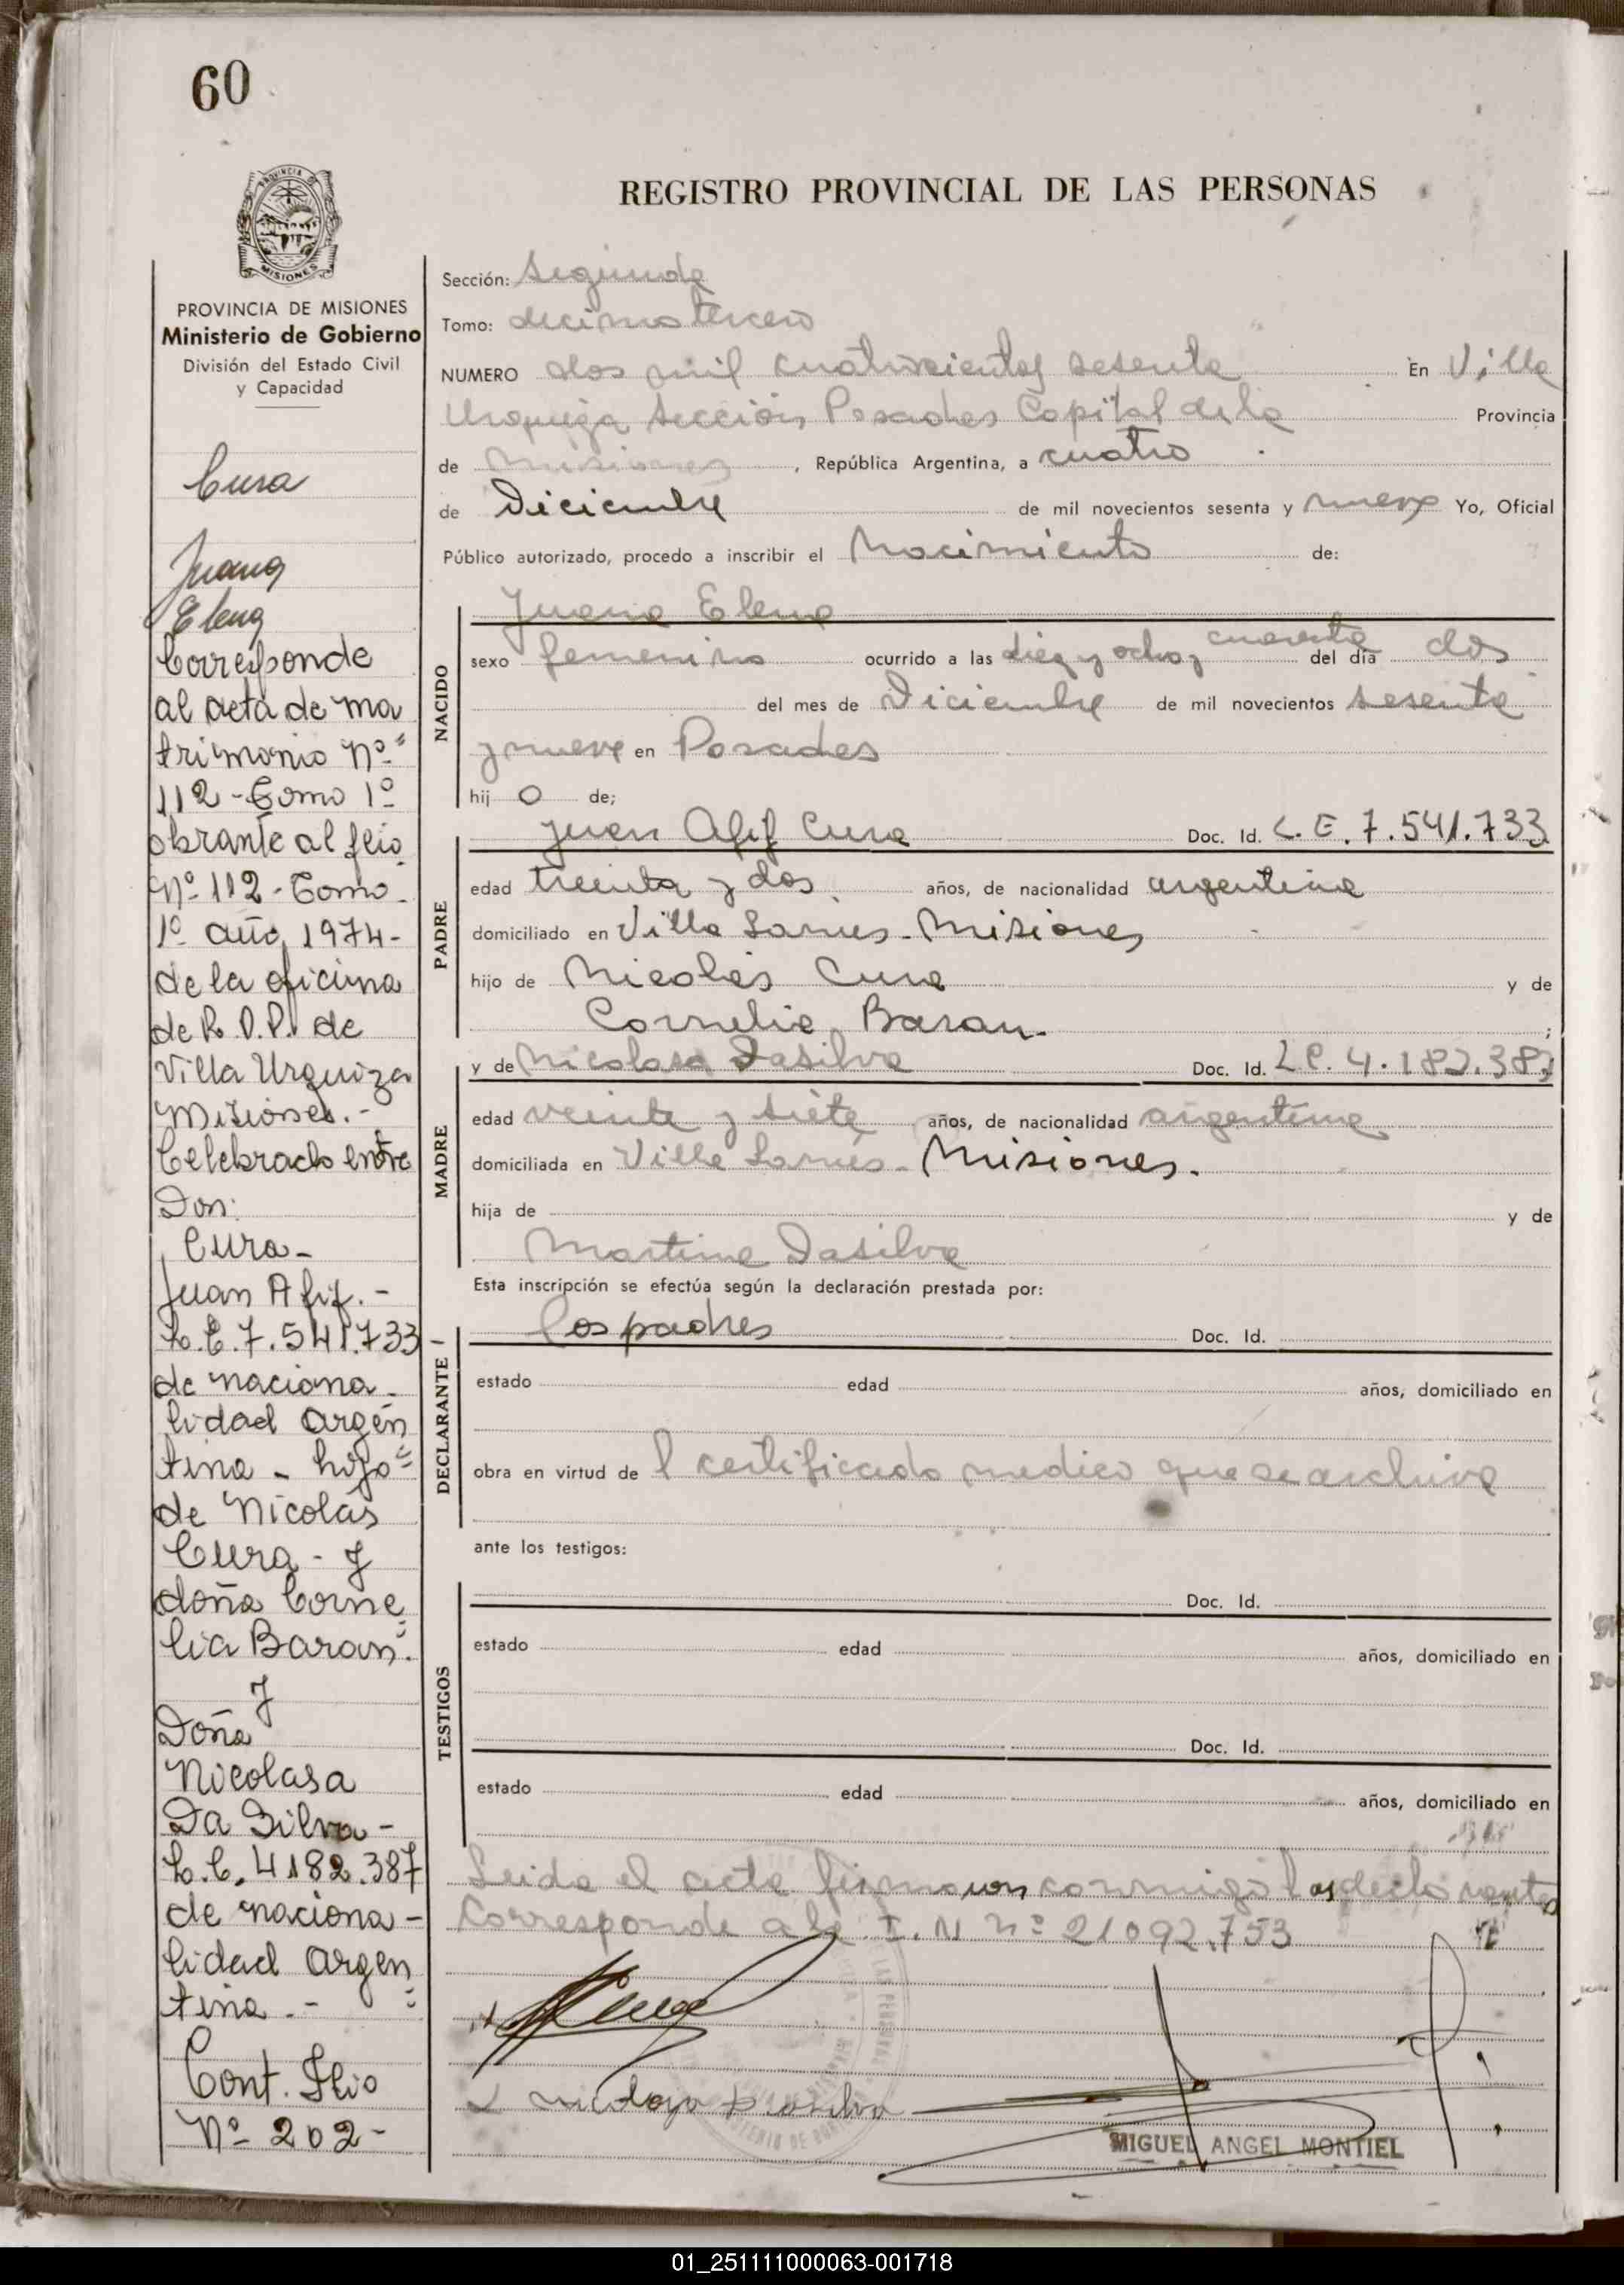 60
REGISTRO PROVINCIAL DE LAS PERSONAS
PROVINCIA DE MISIONES
Ministerio de Gobierno
División del Estado Civil
y Capacidad
Cura
Juana
Elena
Corresponde
al acta de ma
trimonio Nº
112 - Tomo 1º
obrante al flio
Nº 112 - Tomo
1º año 1974-
de la oficina
de R.D.P. de
Villa Urquiza
Misiones.-
Celebrado entre
Don:
Cura-
Juan Afif.-
L.E. 7.541.733
de naciona
lidad argen
tina - hijo
de Nicolás
Cura - y
doña Corne
lia Baran.
y
Doña
Nicolasa
Da Silva-
L.C. 4182.387
de naciona-
lidad argen
tina.-
Cont. Flio
Nº 202-
Sección: Segunda
Tomo: decimo tercero
NUMERO dos mil cuatrocientos sesenta En Villa
Urquiza Sección Posadas Capital de la Provincia
de Misiones, República Argentina, a cuatro
de Diciembre de mil novecientos sesenta y nueve Yo, Oficial
Público autorizado, procedo a inscribir el Nacimiento de:
NACIDO
Juana Elena
sexo femenino ocurrido a las diez y ocho y cuarenta del día dos
del mes de Diciembre de mil novecientos sesenta
y nueve en Posadas
hij o de;
PADRE
Juan Afif Cura Doc. Id. L.E. 7.541.733
edad treinta y dos años, de nacionalidad argentina
domiciliado en Villa Lanús - Misiones
hijo de Nicolás Cura y de
Cornelia Baran.
MADRE
y de Nicolasa Dasilva Doc. Id. LC. 4.182.387
edad veinte y siete años, de nacionalidad argentina
domiciliada en Villa Lanús - Misiones.
hija de y de
Martina Dasilva
Esta inscripción se efectúa según la declaración prestada por:
DECLARANTE
los padres Doc. Id.
estado edad años, domiciliado en
obra en virtud de l certificado medico que se archiva
ante los testigos:
TESTIGOS
Doc. Id.
estado edad años, domiciliado en
Doc. Id.
estado edad años, domiciliado en
Leida el acta firmaron conmigo los declarantes
Corresponde a la I.N nº 21092.753
MIGUEL ANGEL MONTIEL
01_251111000063-001718